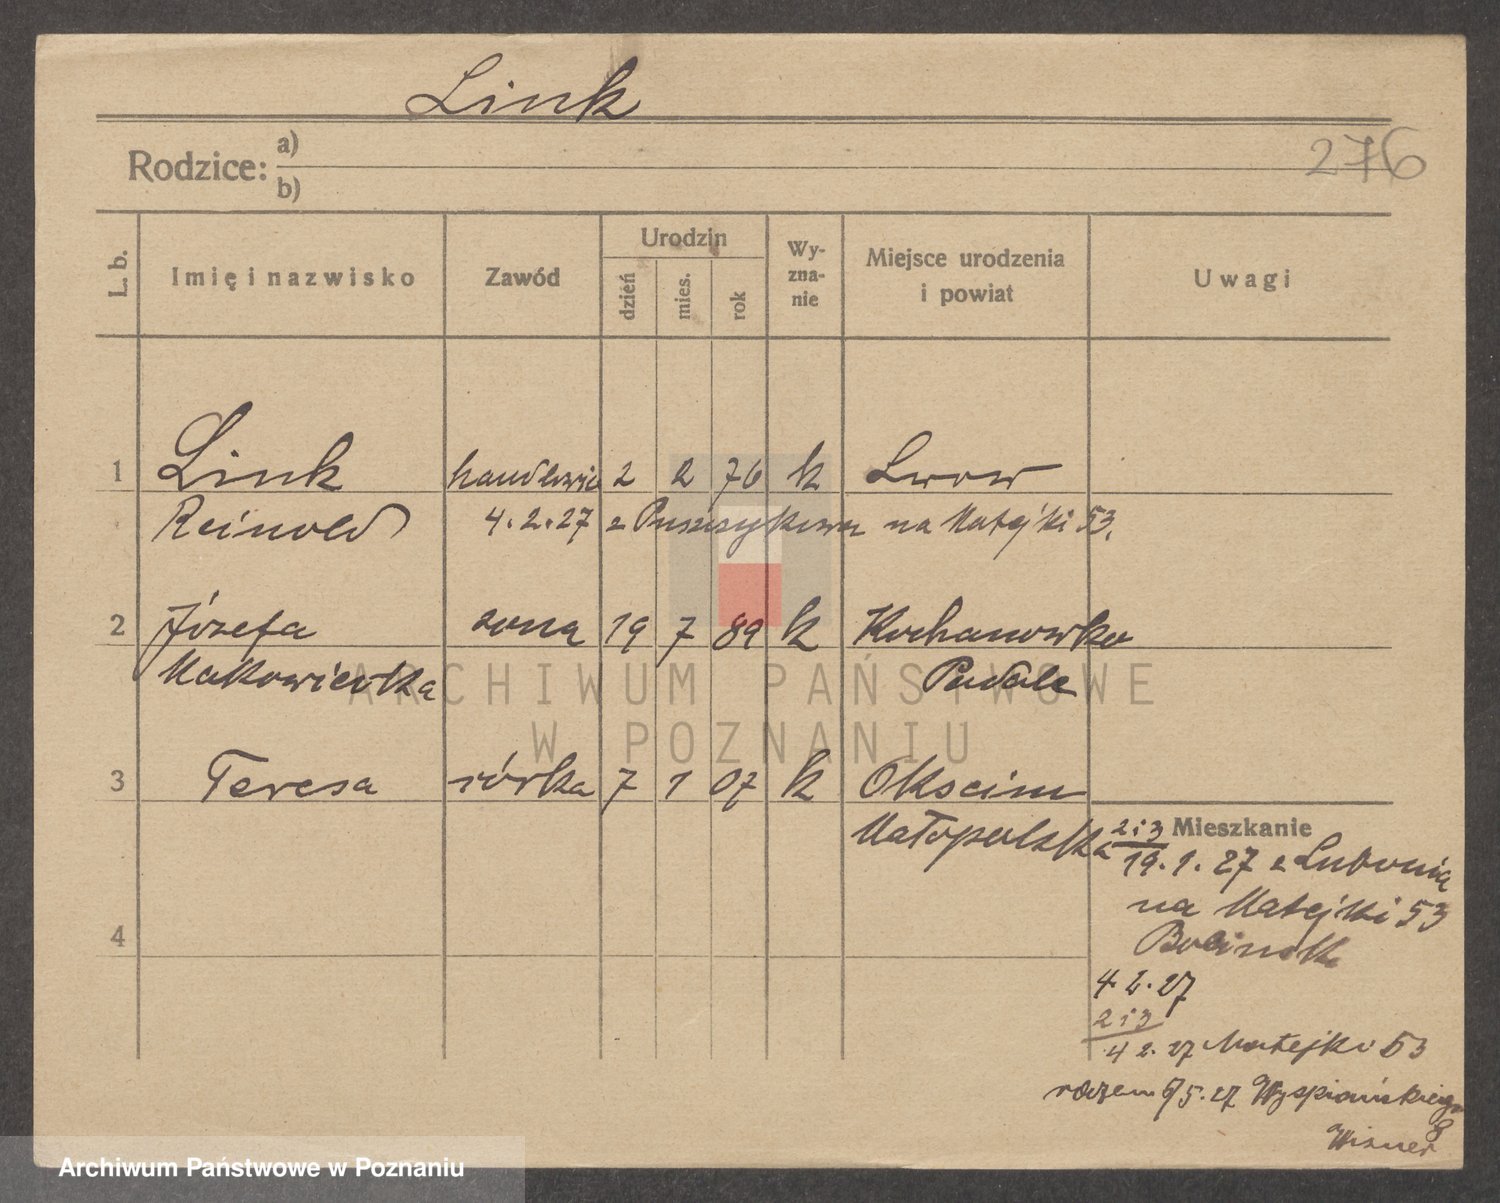 Link
276
Rodzice: a)
b)
L. b. Imię i nazwisko Zawód Urodzin dzień mies. rok Wy-zna-nie Miejsce urodzenia i powiat Uwagi
1 Link handlowiec 2 2 76 k Lwow
Reinold 4.2.27 z Puszczykowa na Matejki 53.
2 Józefa żona 19 7 89 k Kochanowko
Makowiecka
3 Teresa córka 7 1 07 k Okocim
Małopolska
4
2 i 3 Mieszkanie
19.1.27 z Lubonia
na Matejki 53
4.2.27
2 i 3
4 2. 27 Matejki 53
razem 5.27 Wyspiańskiego 8
Wisner
ARCHIWUM PAŃSTWOWE
W POZNANIU
Archiwum Państwowe w Poznaniu